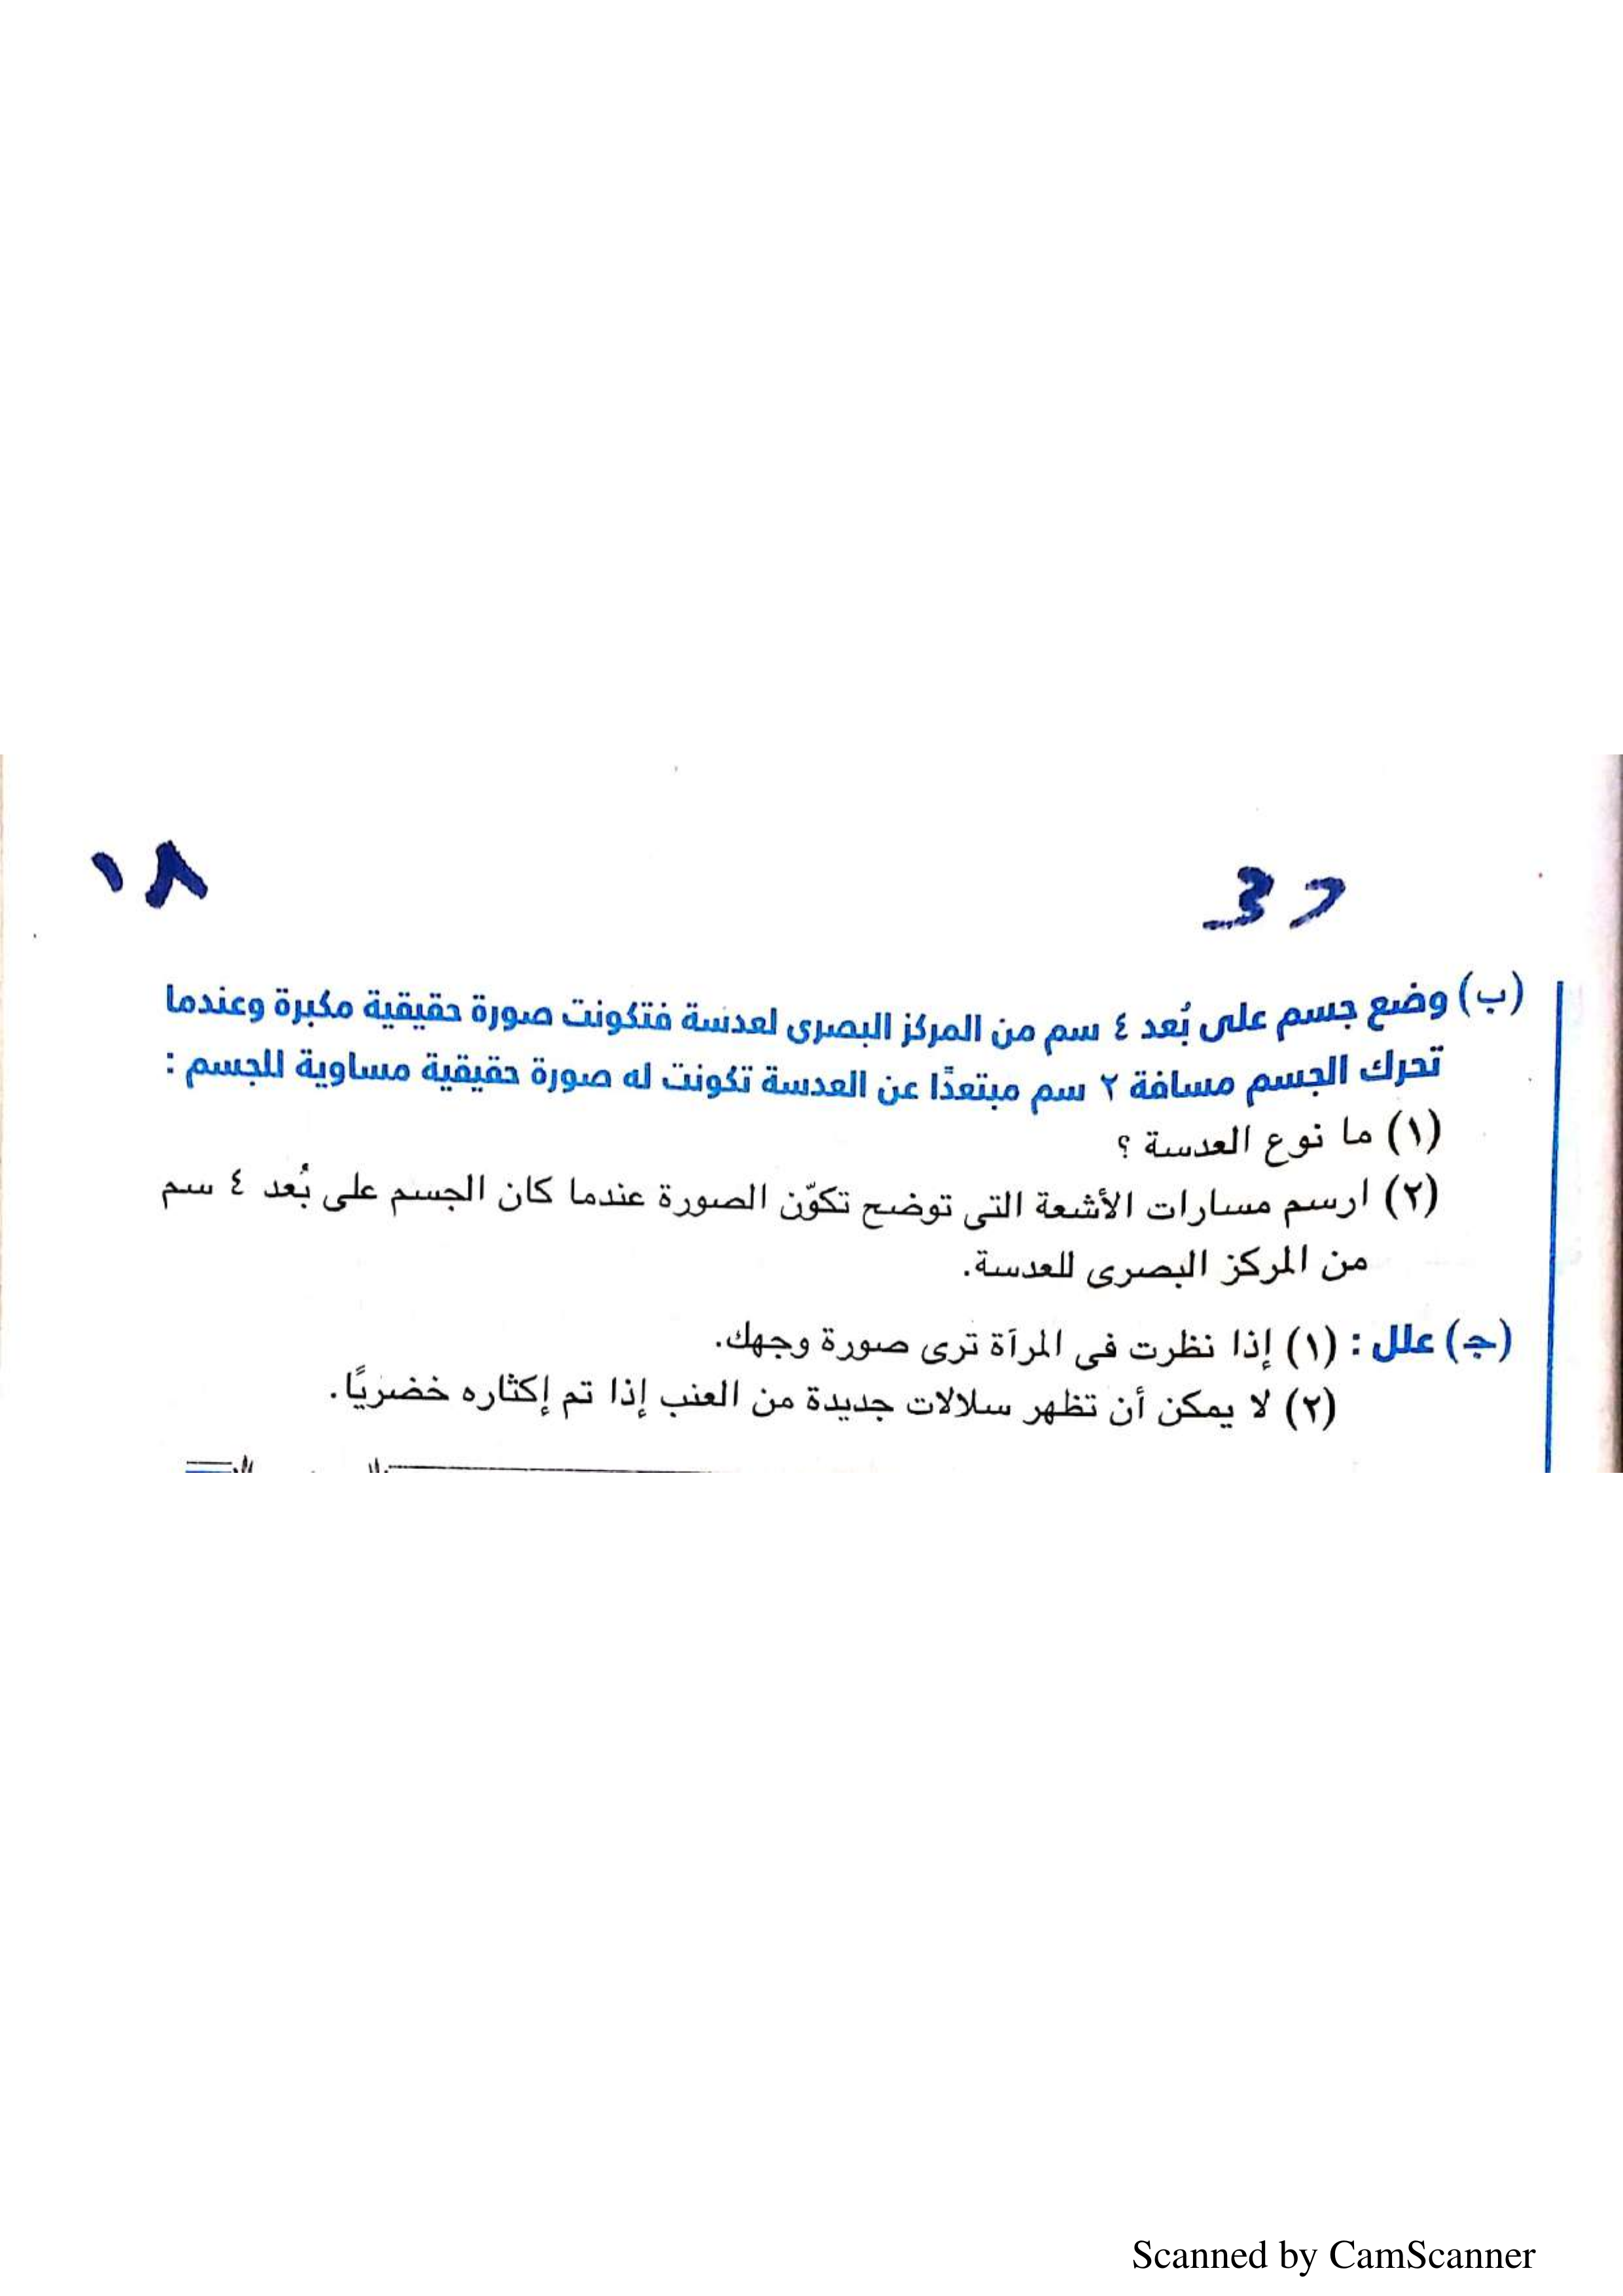 ١٨
(ب) وضع جسم على بُعد ٤ سم من المركز البصرى لعدسة فتكونت صورة حقيقية مكبرة وعندما
تحرك الجسم مسافة ٢ سم مبتعدًا عن العدسة تكونت له صورة حقيقية مساوية للجسم :
(١) ما نوع العدسة ؟
(٢) ارسم مسارات الأشعة التى توضح تكوّن الصورة عندما كان الجسم على بُعد ٤ سم
من المركز البصرى للعدسة.
(جـ) علل : (١) إذا نظرت فى المرآة ترى صورة وجهك.
(٢) لا يمكن أن تظهر سلالات جديدة من العنب إذا تم إكثاره خضريًا.
Scanned by CamScanner